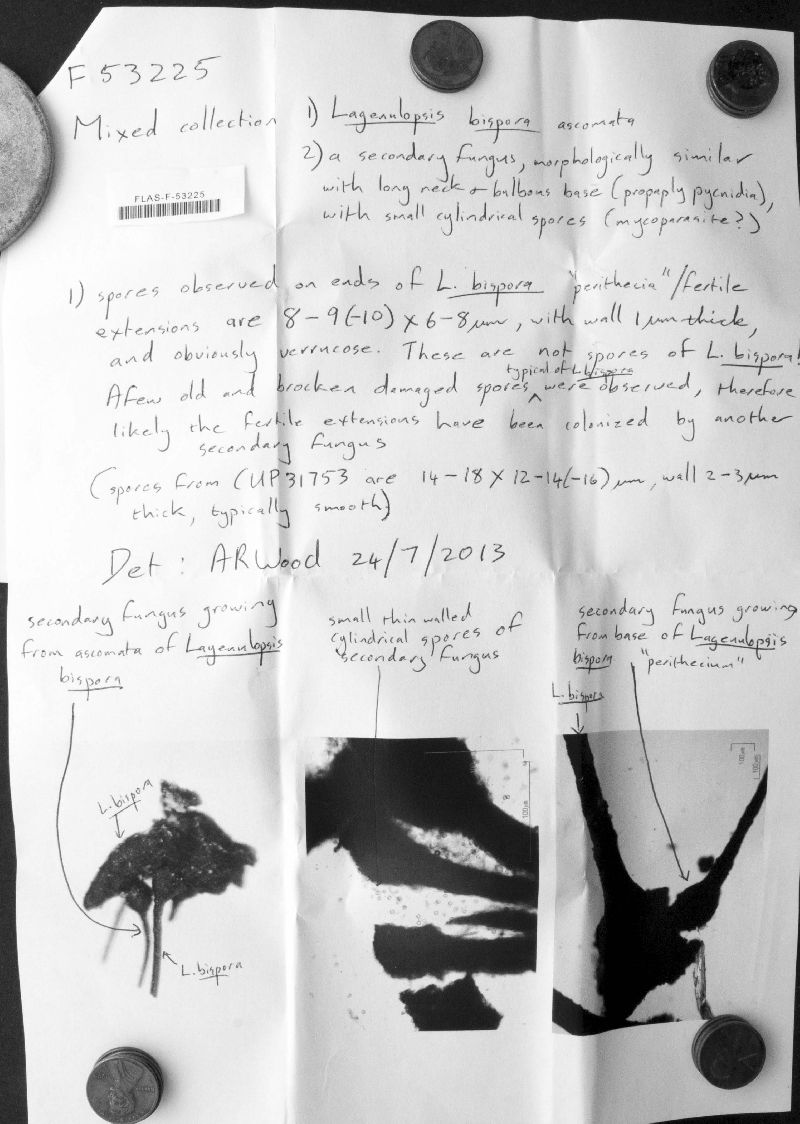 F 53225
Mixed collection
FLAS-F-53225
1) Lagenulopsis bispora ascomata
2) a secondary fungus, morphologically similar
with long neck + bulbous base (propaply pycnidia),
with small cylindrical spores (mycoparasite?)
1) spores observed on ends of L. bispora "perithecia"/fertile
extensions are 8-9(-10) x 6-8µm, with wall 1µm thick,
and obviously verrucose. These are not spores of L. bispora!
typical of L. bispora
A few old and brocken damaged spores ^ were observed, therefore
likely the fertile extensions have been colonized by another
secondary fungus
(spores from CUP31753 are 14-18 x 12-14(-16)µm, wall 2-3µm
thick, typically smooth)
Det: ARWood 24/7/2013
secondary fungus growing
from ascomata of Lagenulopsis
bispora
small thin walled
cylindrical spores of
secondary fungus
secondary fungus growing
from base of Lagenulopsis
bispora "perithecium"
L. bispora
L. bispora
L. bispora
100µm
100µm